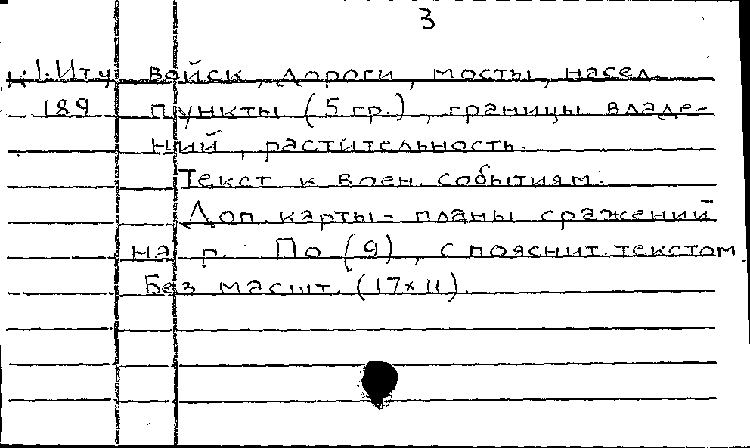 3
войск, дороги, мосты, насел.
189 пункты (5 гр.), границы владе-
ний, растительность.
Текст к воен. событиям.
Доп. карты-планы сражений
на р. По (9), с пояснит. текстом.
Без масшт. (17×11).